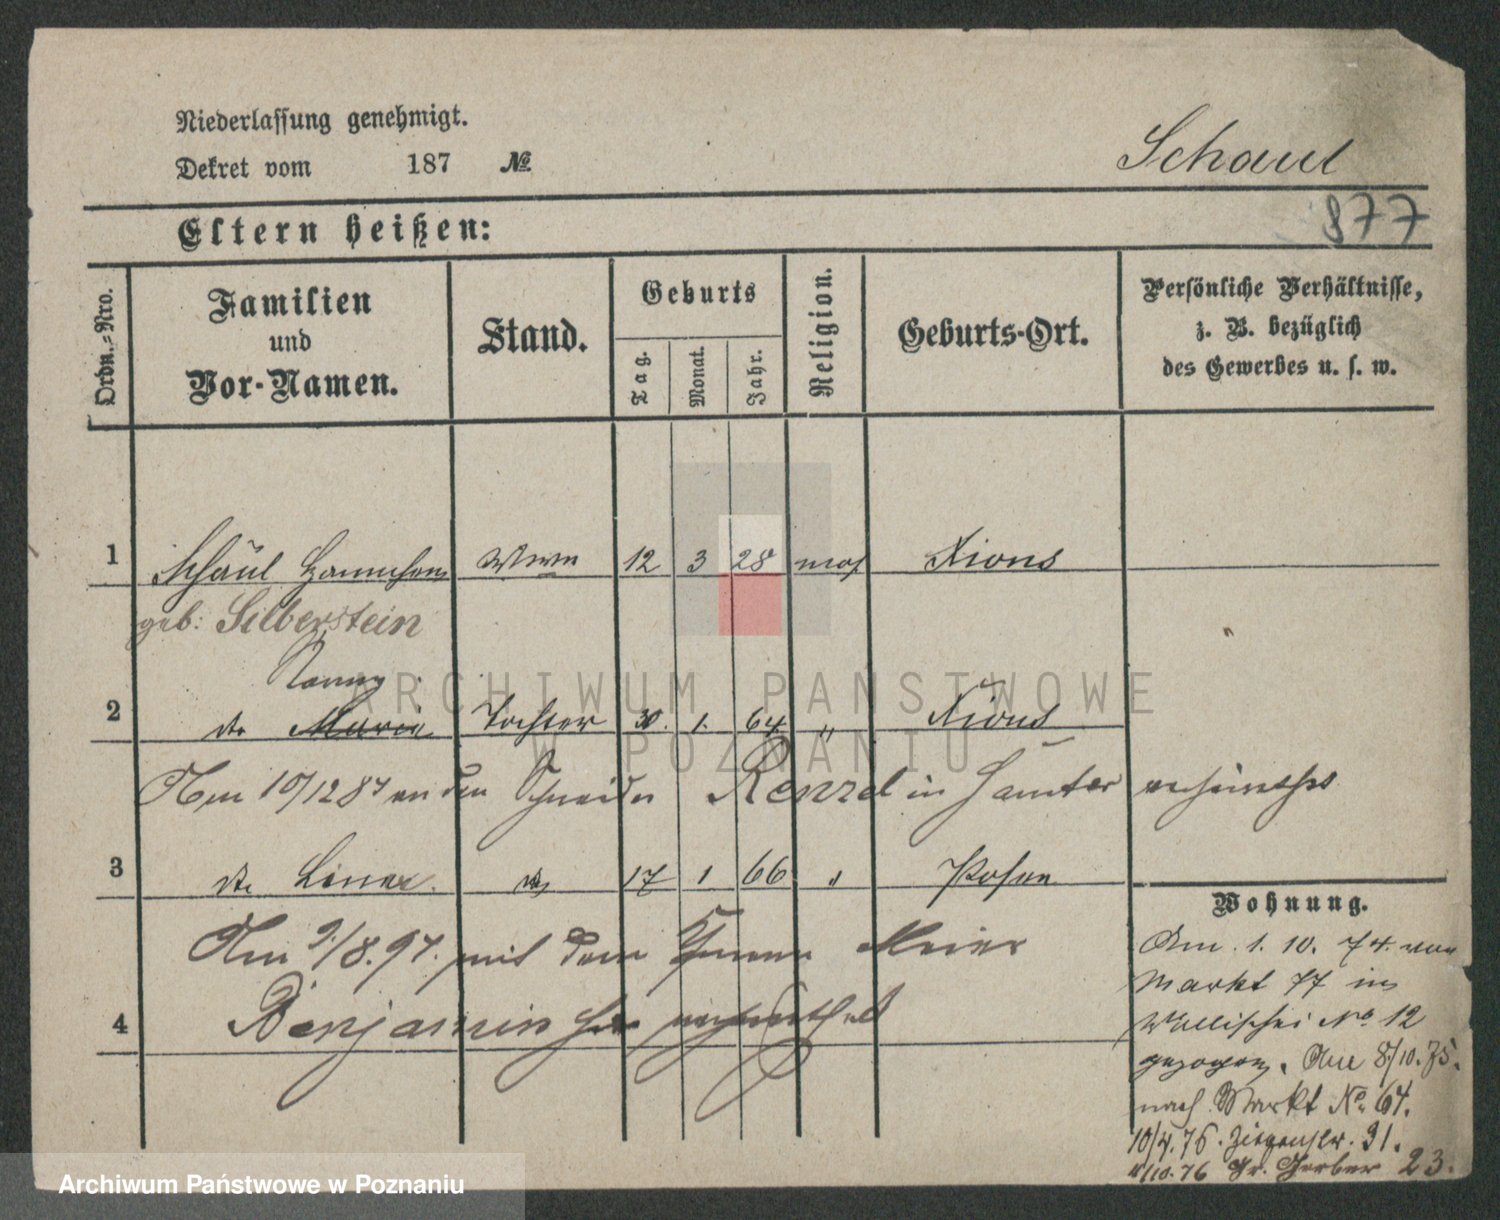 Niederlassung genehmigt.
Dekret vom 187 №
Schaul
Eltern heißen:
877
Ordn.-Nro.
Familien und Vor-Namen.
Stand.
Geburts
Tag.
Monat.
Jahr.
Religion.
Geburts-Ort.
Persönliche Verhältnisse,
z. B. bezüglich
des Gewerbes u. s. w.
1 Schaul Hannchen Wwe 12 3 28 mos Xions
geb: Silberstein
Nanny
2 do Marie Tochter 30. 1. 64 " Xions
Am 10/12 87 an den Schneider Renzel in Samter verheirathet
3 do Lina do 17 1 66 " Posen
Am 9/8.97. mit dem Meier
4 Benjamin hier verheirathet
Wohnung.
Am 1. 10. 74. von
Markt 77 in
Wallischei No 12
gezogen. Am 8/10.75.
nach Markt No 64.
10/4.76. Ziegenstr. 31.
/10.76 Gr. Gerber 23.
ARCHIWUM PAŃSTWOWE
W POZNANIU
Archiwum Państwowe w Poznaniu